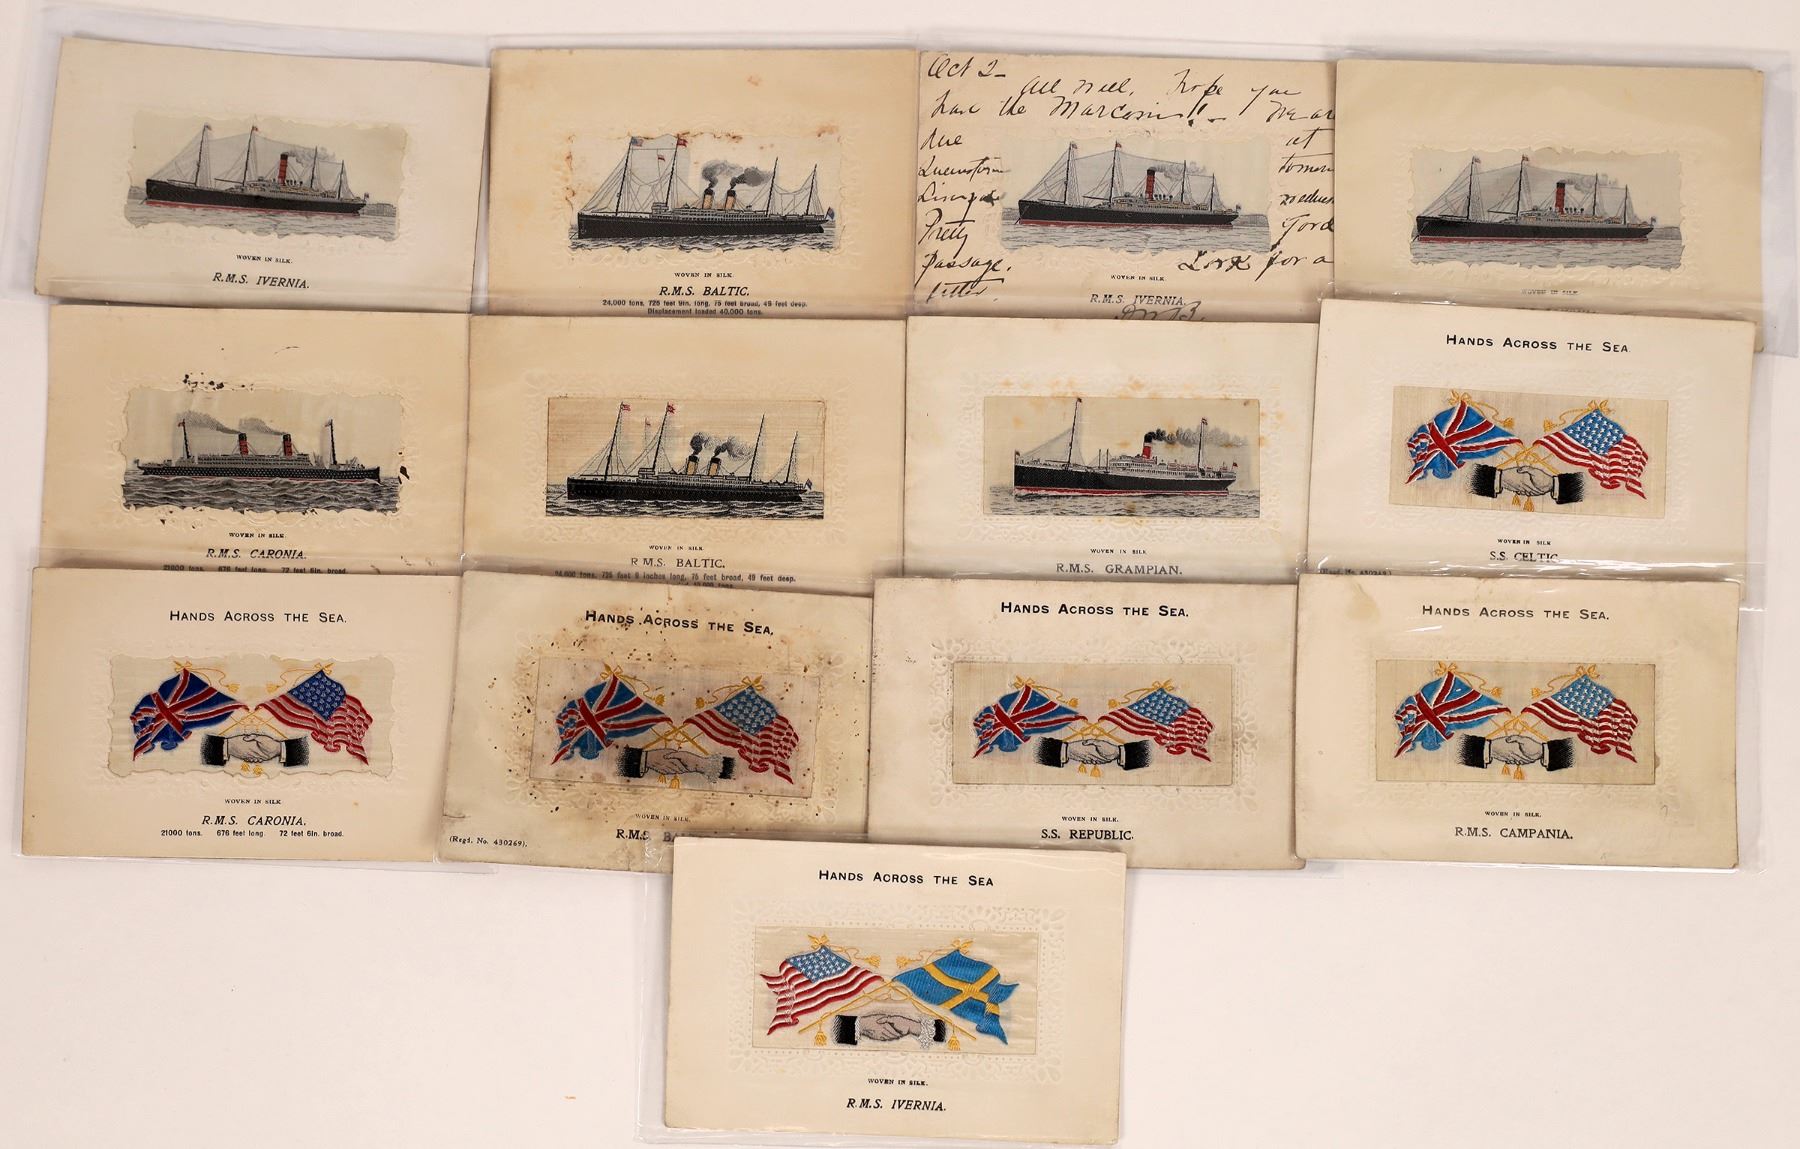 WOVEN IN SILK.
R.M.S. IVERNIA.
WOVEN IN SILK.
R.M.S. BALTIC.
24,000 tons, 725 feet 9in. long, 75 feet broad, 49 feet deep.
Displacement loaded 40,000 tons.
Oct 2-
All well, hope you
have the Marconi!!- We are
due at
Queenstown
Pretty
Passage. Look for a
letter.
WOVEN IN SILK.
R.M.S. IVERNIA.
WOVEN IN SILK.
WOVEN IN SILK.
R.M.S. CARONIA.
21000 tons. 676 feet long. 72 feet 6in. broad.
WOVEN IN SILK.
R.M.S. BALTIC.
24,000 tons, 725 feet 9 inches long, 75 feet broad, 49 feet deep.
40,000 tons.
WOVEN IN SILK.
R.M.S. GRAMPIAN.
HANDS ACROSS THE SEA.
WOVEN IN SILK
S.S. CELTIC.
(Regd. No. 430269)
HANDS ACROSS THE SEA.
WOVEN IN SILK
R.M.S. CARONIA.
21000 tons. 676 feet long. 72 feet 6in. broad.
HANDS ACROSS THE SEA,
WOVEN IN SILK.
R.M.S.
(Regd. No. 430269).
HANDS ACROSS THE SEA.
WOVEN IN SILK.
S.S. REPUBLIC.
HANDS ACROSS THE SEA.
WOVEN IN SILK.
R.M.S. CAMPANIA.
HANDS ACROSS THE SEA
WOVEN IN SILK.
R.M.S. IVERNIA.